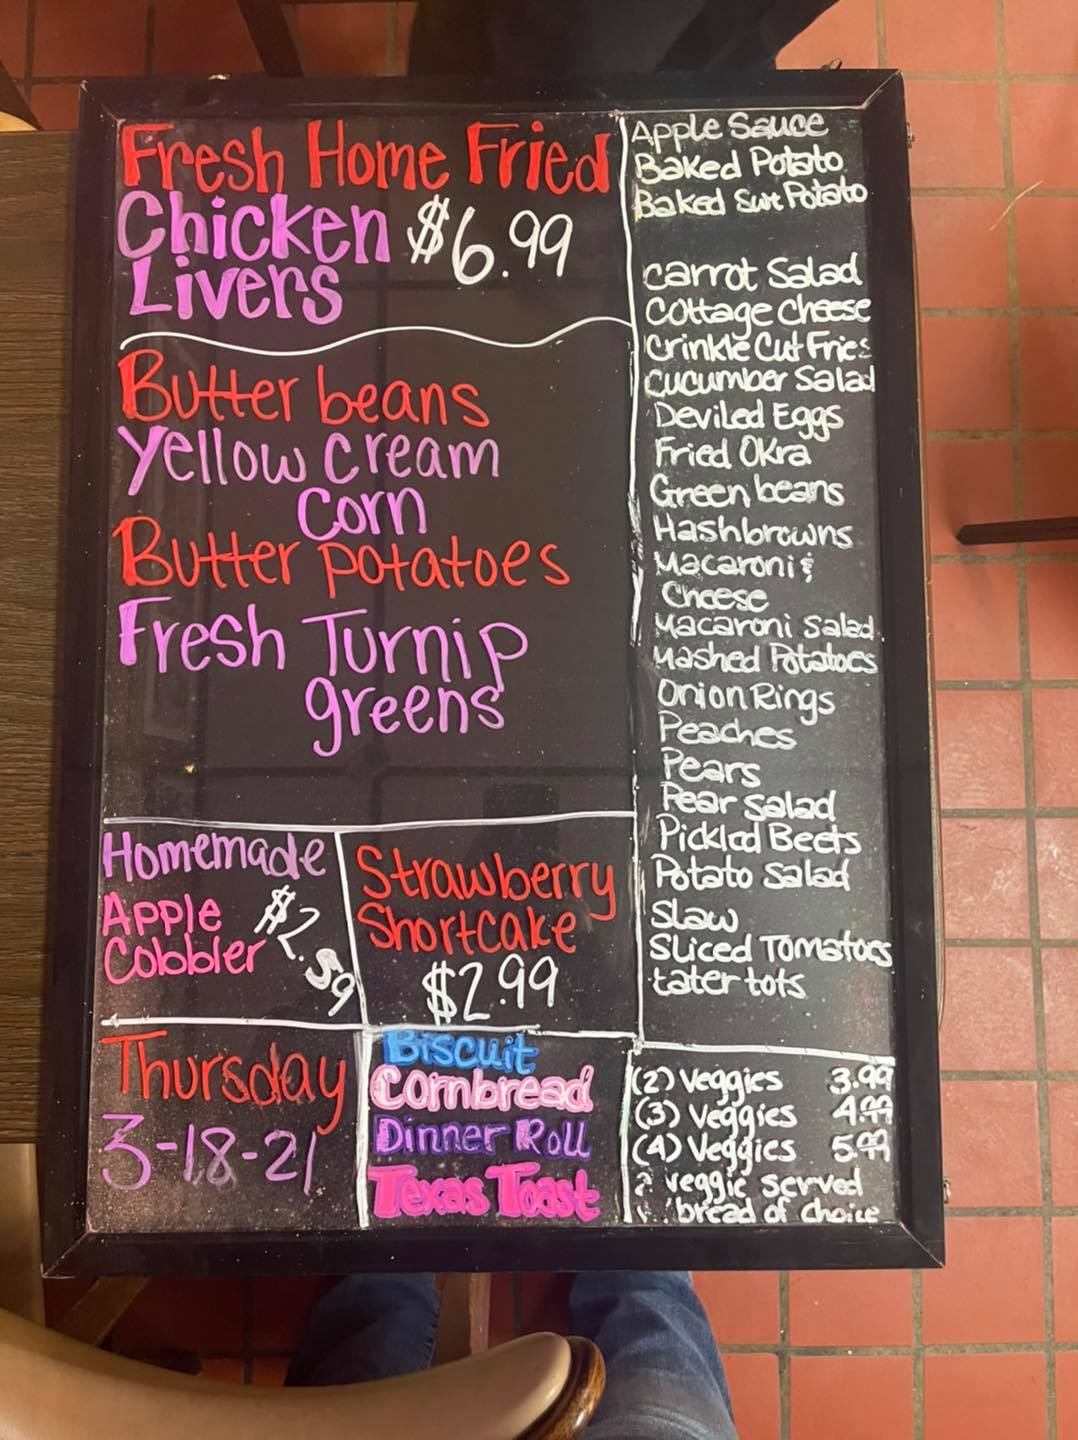 Fresh Home Fried
Chicken $6.99
Livers
Butter beans
Yellow cream
corn
Butter potatoes
Fresh Turnip
greens
Homemade
Apple $2.59
Cobbler
Strawberry
Shortcake
$2.99
Thursday
3-18-21
Biscuit
Cornbread
Dinner Roll
Texas Toast
Apple Sauce
Baked Potato
Baked Swt Potato
Carrot Salad
Cottage Cheese
Crinkle Cut Fries
Cucumber Salad
Deviled Eggs
Fried Okra
Green beans
Hashbrowns
Macaroni &
Cheese
Macaroni Salad
Mashed Potatoes
Onion Rings
Peaches
Pears
Pear Salad
Pickled Beets
Potato Salad
Slaw
Sliced Tomatoes
tater tots
(2) Veggies 3.99
(3) Veggies 4.99
(4) Veggies 5.99
veggie served
bread of choice